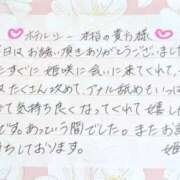 ホテル 本指の貴方様
日はお誘い頂きありがとうございまし
たすぐに姫咲に会いに来てくれて、
たくさん攻めて、アナル舐めもいっぱ
て気持ち良くなってくれて嬉し
です。あっという間でした。またお
ちしております。 姫